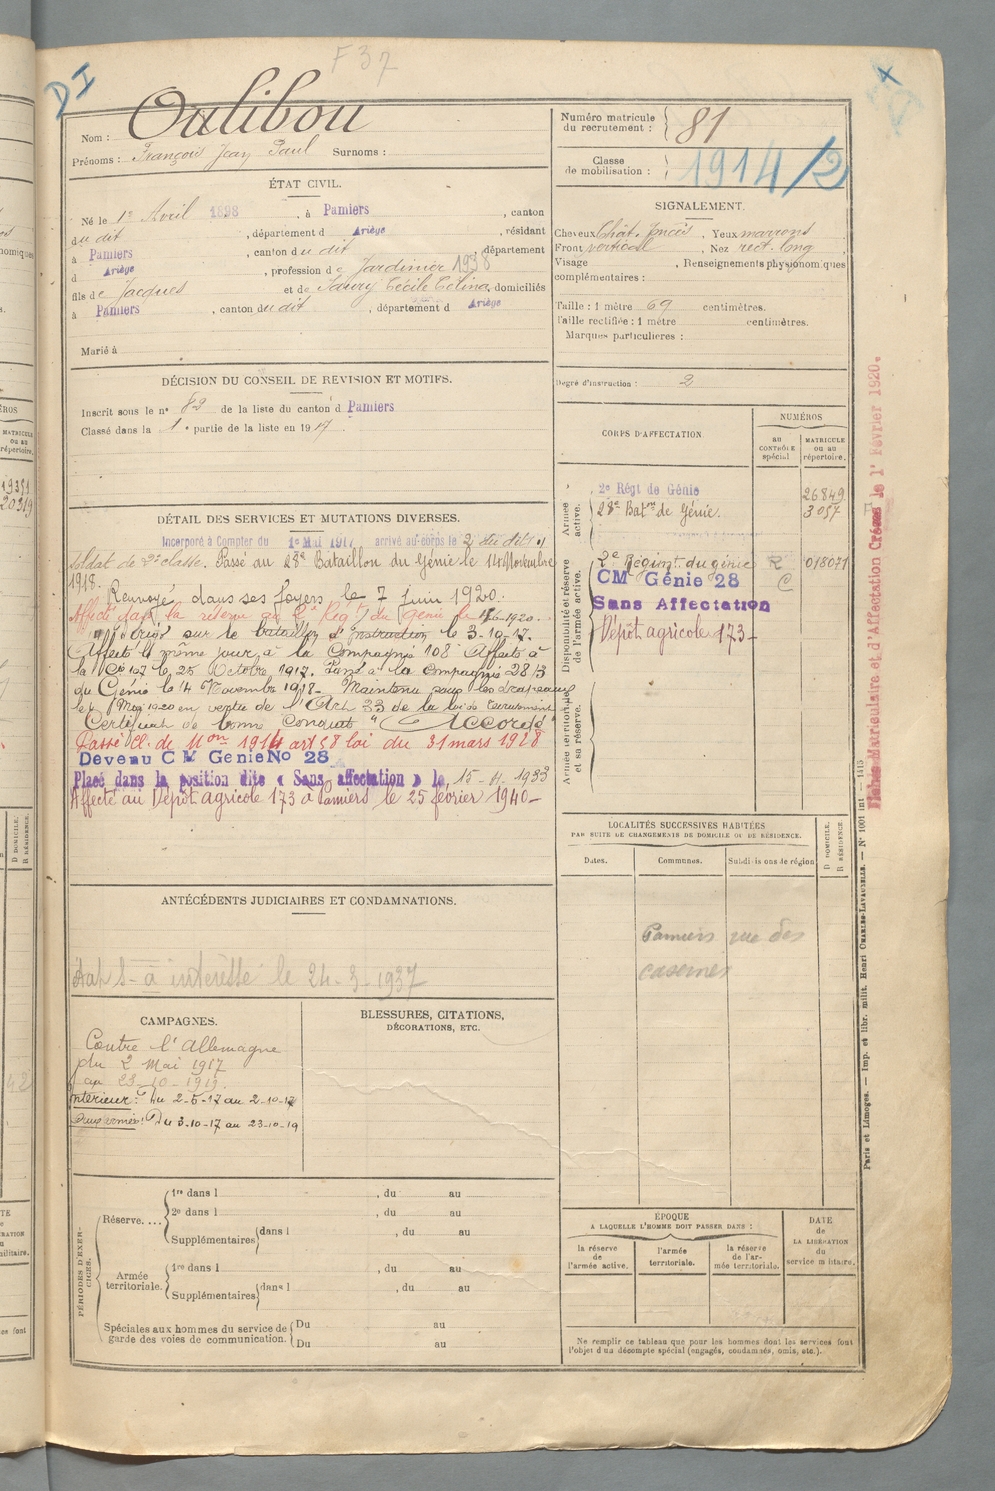 F 37
DI
Nom : Oulibou
Prénoms : François Jean Paul Surnoms :
Numéro matricule du recrutement : 81
Classe de mobilisation : 1914/2
ÉTAT CIVIL.
Né le 1er Avril 1898, à Pamiers, canton
du dit, département d Ariège, résidant
à Pamiers, canton du dit, département
d Ariège, profession de Jardinier 1938
fils de Jacques et de Saury Cécile Célina, domiciliés
à Pamiers, canton du dit, département d Ariège
Marié à
SIGNALEMENT.
Cheveux Chât. foncés, Yeux marrons
Front vertical, Nez rect. long
Visage , Renseignements physionomiques
complémentaires :
Taille : 1 mètre 69 centimètres.
Taille rectifiée : 1 mètre centimètres.
Marques particulières :
Degré d'instruction : 2
DÉCISION DU CONSEIL DE REVISION ET MOTIFS.
Inscrit sous le n° 82 de la liste du canton d Pamiers
Classé dans la 1e partie de la liste en 1917
DÉTAIL DES SERVICES ET MUTATIONS DIVERSES.
Incorporé à Compter du 1er Mai 1917 arrivé au corps le 2 du dit
soldat de 2e classe. Passé au 28e Bataillon du Génie le 14 Novembre
1918.
Renvoyé dans ses foyers le 7 juin 1920.
Affecté dans la réserve au 2e Régt du Génie le
Dirigé sur le bataillon d'instruction le 3-10-17.
Affecté le même jour à la Compagnie 108 Affecté à
la Cie 107 le 25 Octobre 1917. Passé à la Compagnie 28/3
du Génie le 14 Novembre 1918 - Maintenu sous les drapeaux
le 1 Mai 1920 en vertu de l'Art 33 de la loi de recrutement
Certificat de bonne Conduite "Accordé"
Passé Cl. de Mon 1914 art 58 loi du 31 mars 1928
Devenu CM Génie No 28
Placé dans la position dite « Sans affectation » le 15-11-1933
Affecté au Dépôt agricole 173 à Pamiers le 25 février 1940-
CORPS D'AFFECTATION.
NUMÉROS
au CONTRÔLE spécial
MATRICULE ou au répertoire.
Armée active.
2e Régt de Génie 26849
28e Batn de Génie. 3057
Disponibilité et réserve de l'armée active.
2e Régimt. du génie R 018071
CM Génie 28 C
Sans Affectation
Dépôt agricole 173-
Armée territoriale et sa réserve.
LOCALITÉS SUCCESSIVES HABITÉES
PAR SUITE DE CHANGEMENTS DE DOMICILE OU DE RÉSIDENCE.
Dates.
Communes.
Subdivisions de région
D DOMICILE.
R RÉSIDENCE.
Pamiers rue des
casernes
ANTÉCÉDENTS JUDICIAIRES ET CONDAMNATIONS.
à intéressé le 24-3-1937
CAMPAGNES.
Contre l'Allemagne
du 2 Mai 1917
au 23-10-1919.
Intérieur : Du 2-5-17 au 2-10-17
Aux armées : Du 3-10-17 au 23-10-19
BLESSURES, CITATIONS,
DÉCORATIONS, ETC.
PÉRIODES D'EXERCICES.
Réserve....
1re dans l , du au
2e dans l , du au
Supplémentaires dans l , du au
Armée territoriale.
1re dans l , du au
Supplémentaires dans l , du au
Spéciales aux hommes du service de garde des voies de communication.
Du au
Du au
ÉPOQUE
A LAQUELLE L'HOMME DOIT PASSER DANS :
la réserve de l'armée active.
l'armée territoriale.
la réserve de l'armée territoriale.
DATE de LA LIBÉRATION du service militaire.
Ne remplir ce tableau que pour les hommes dont les services font
l'objet d'un décompte spécial (engagés, condamnés, omis, etc.).
Fiches Matriculaire et d'Affectation Créées le 1er Février 1920.
Paris et Limoges. — Imp. et libr. milit. Henri CHARLES-LAVAUZELLE. — N° 1001 int — 1413